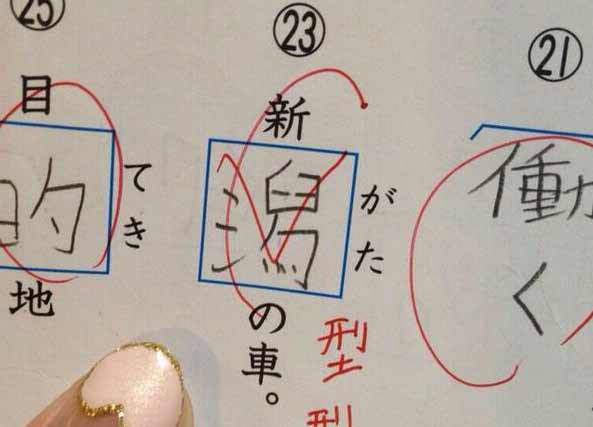 ㉑
働く
㉓
新潟の車。
がた
型
㉕
目的地
てき